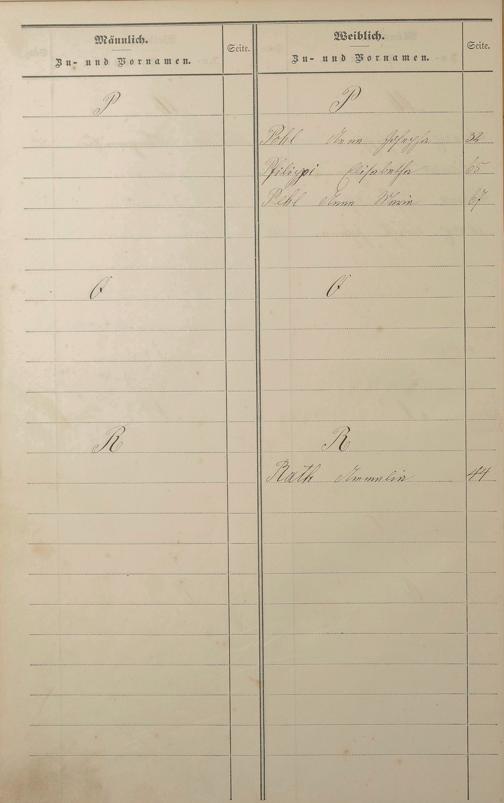 Männlich.
Zu- und Vornamen.
Seite.
Weiblich.
Zu- und Vornamen.
Seite.
P
P
Pohl Anna Josepha 32
Philippi Elisabetha 65
Pehl Anna Maria 67
R
R
Rath Ammelie 44